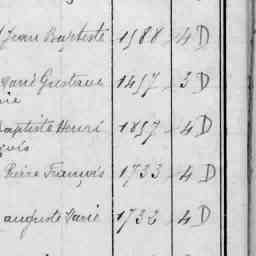 Jean Baptiste 1988 4 D
Marie Gustave 1457 3 D
Baptiste Henri 1857 4 D
Pierre François 1733 4 D
auguste Marie 1732 4 D